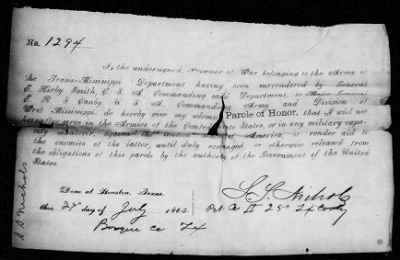 No. 1294
I, the undersigned, Prisoner of War belonging to the Army of
the Trans-Mississippi Department having been surrendered by General
E. Kirby Smith, C. S. A. Commanding said Department, to Major General
E. R. S. Canby, U. S. A., Commanding Army and Division of
West Mississippi, do hereby give my solemn Parole of Honor, that I will not
hereafter serve in the Armies of the Confederate States, or in any military capa-
city whatever, against the United States of America, or render aid to
the enemies of the latter, until duly exchanged, or otherwise released from
the obligations of this parole by the authority of the Government of the United
States.
Done at Houston, Texas.
this 27 day of July 1865.
Bosque Co Tx
Pvt
25 Tx Cavly
Nichols